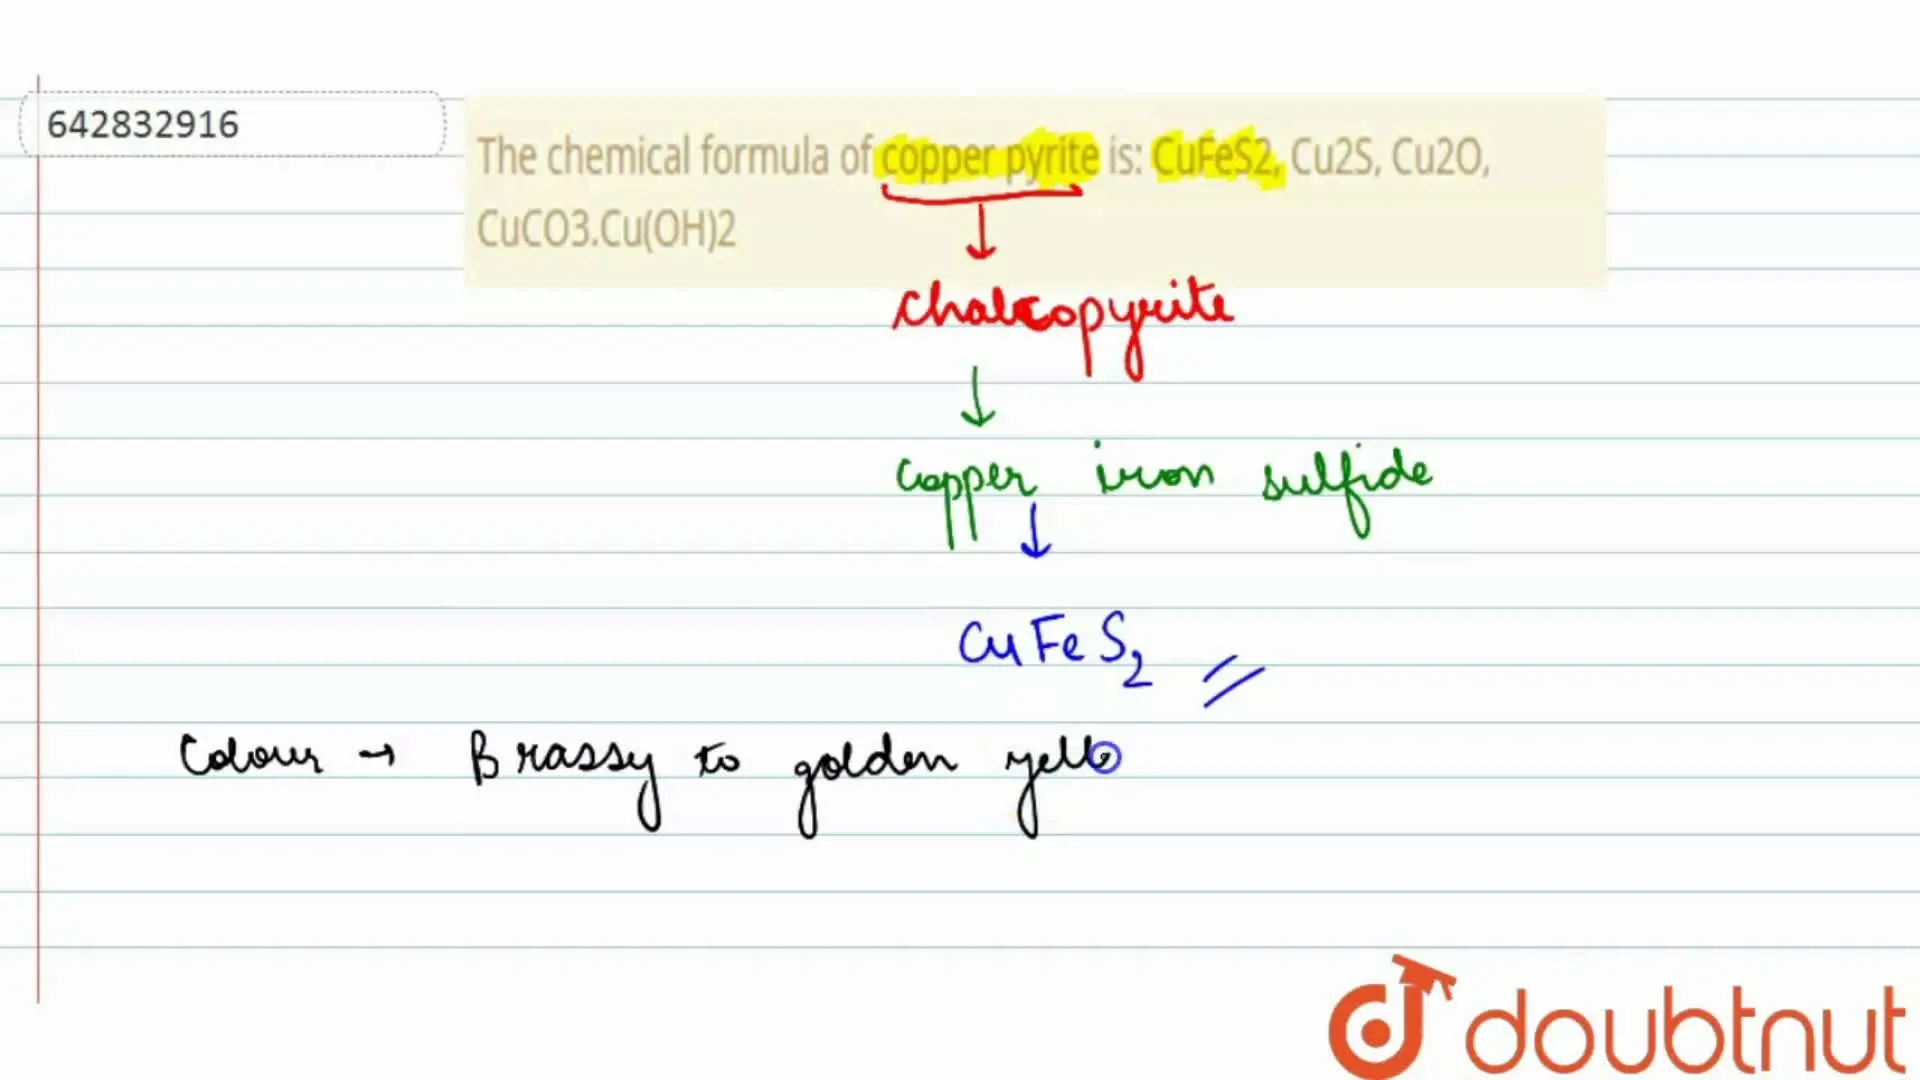 642832916
The chemical formula of copper pyrite is: CuFeS2, Cu2S, Cu2O,
CuCO3.Cu(OH)2
Chalcopyrite
copper iron sulfide
CuFeS2
Colour → Brassy to golden yello
doubtnut